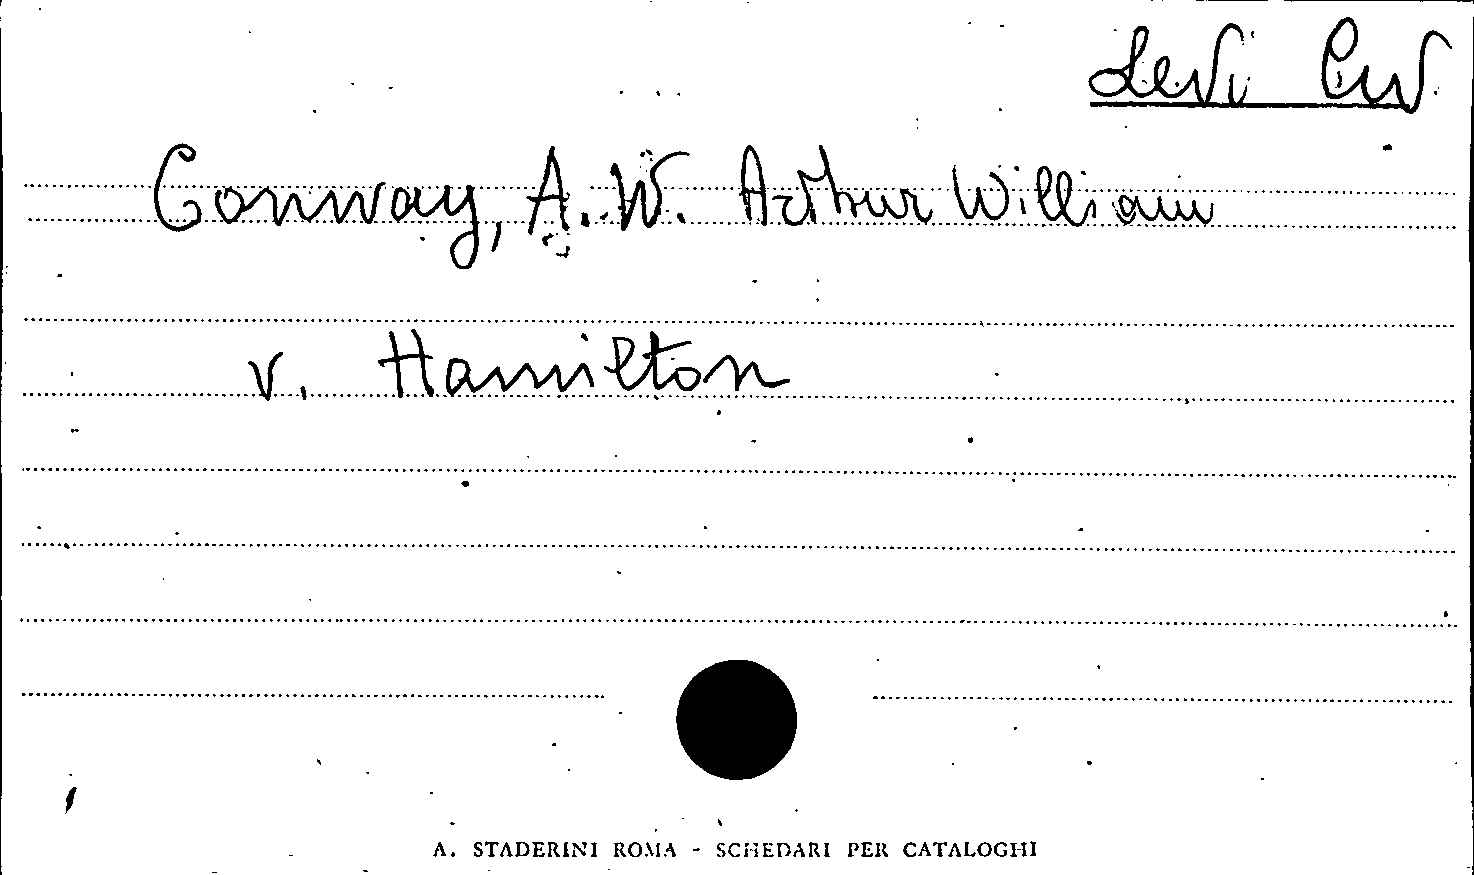 Levi Civ
Conway, A. W. Arthur William
v. Hamilton
A. STADERINI ROMA - SCHEDARI PER CATALOGHI